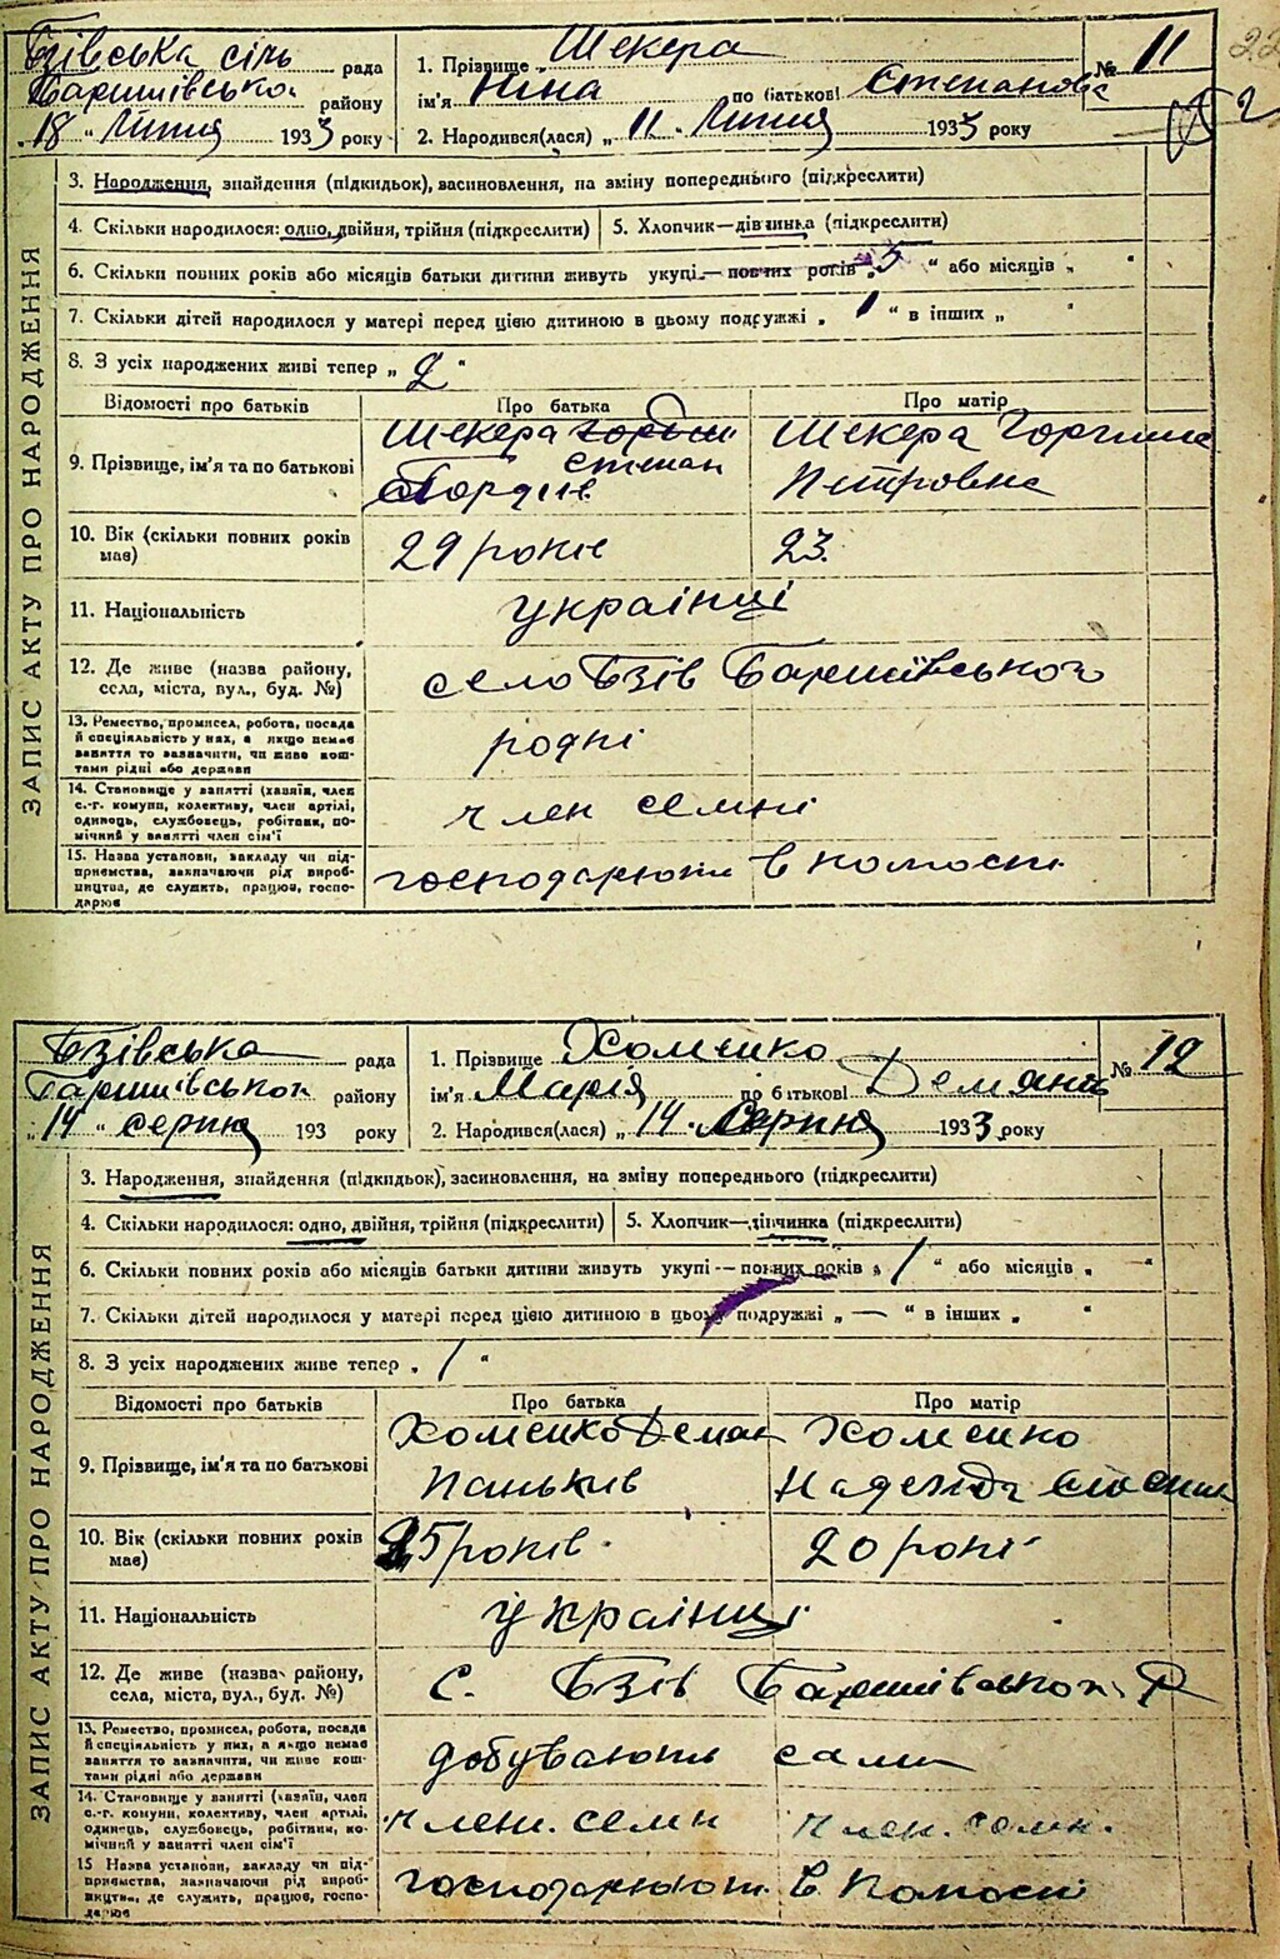 Бзівська січь рада
Баришівсько. району
„18“ Липня 1933 року
1. Прізвище Шекера
ім'я Ніна по батькові Степанова
№ 11
2. Народився(лася) „11“ Липня 1933 року
ЗАПИС АКТУ ПРО НАРОДЖЕННЯ
3. Народження, знайдення (підкидьок), васиновлення, на зміну попереднього (підкреслити)
4. Скільки народилося: одно, двійня, трійня (підкреслити) 5. Хлопчик—дівчинка (підкреслити)
6. Скільки повних років або місяців батьки дитини живуть укупі — повних років „5“ або місяців „ “
7. Скільки дітей народилося у матері перед цією дитиною в цьому подружжі „1“ в інших „ “
8. З усіх народжених живі тепер „2“
Відомості про батьків Про батька Про матір
9. Прізвище, ім'я та по батькові
Шекера Степан
Гордіїв
Шекера Горпина
Петровна
10. Вік (скільки повних років
має)
29 років 23.
11. Національність українці
12. Де живе (назва району,
села, міста, вул., буд. №)
село Бзів Баришівського
13. Ремество, промисел, робота, посада
й спеціяльність у нах, а якщо немає
ваняття то зазначити, чи живе кош-
тами рідні або держави
родні
14. Становище у занятті (хазяїн, член
с.-г. комуни, колективу, член артілі,
одинець, службовець, робітник, по-
мічний у занятті член сім'ї
член семні
15. Назва установи, закладу чи під-
приємства, зазначаючи рід вироб-
ництва, де служить, працює, госпо-
дарює
господарюють в колоспі
Бзівська рада
Баришівсько. району
„14“ серпня 193 року
1. Прізвище Хоменко
ім'я Марія по батькові Демянів
№ 12
2. Народився(лася) „14“ Серпня 1933 року
ЗАПИС АКТУ ПРО НАРОДЖЕННЯ
3. Народження, знайдення (підкидьок), васиновлення, на зміну попереднього (підкреслити)
4. Скільки народилося: одно, двійня, трійня (підкреслити) 5. Хлопчик—дівчинка (підкреслити)
6. Скільки повних років або місяців батьки дитини живуть укупі — повних років „1“ або місяців „ “
7. Скільки дітей народилося у матері перед цією дитиною в цьому подружжі „—“ в інших „ “
8. З усіх народжених живе тепер „1“
Відомості про батьків Про батька Про матір
9. Прізвище, ім'я та по батькові
Хоменко Демян
Паньків
Хоменко
Надежда
10. Вік (скільки повних років
має)
25 років. 20 рокі
11. Національність українці
12. Де живе (назва району,
села, міста, вул., буд. №)
с. Бзів Баришівськог. Р
13. Ремество, промисел, робота, посада
й спеціяльність у них, а якщо немає
ваняття то зазначити, чи живе кош-
тами рідні або держави
добувають сами
14. Становище у занятті (хазяїн, член
с.-г. комуни, колективу, член артілі,
одинець, службовець, робітник, по-
мічний у занятті член сім'ї
член. семи член. семи.
15 Назва установи, закладу чи під-
приємства, зазначаючи рід вироб-
ництва, де служить, працює, госпо-
дарює
господарюют. в колоспі